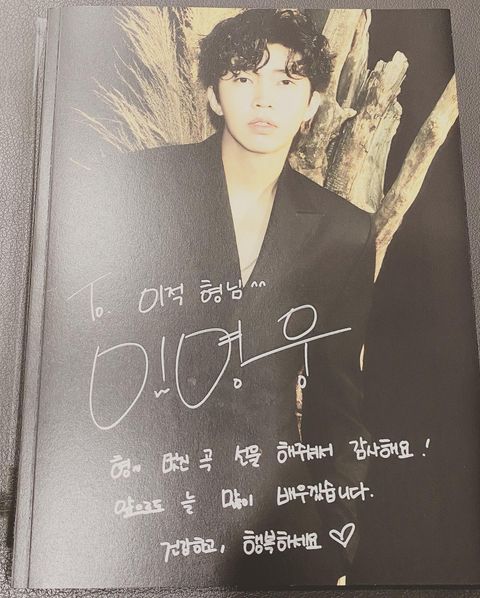 To. 이적 형님^^
임영웅
형~ 멋진 곡 선물 해주셔서 감사해요!
앞으로도 늘 많이 배우겠습니다.
건강하고, 행복하세요 ♡